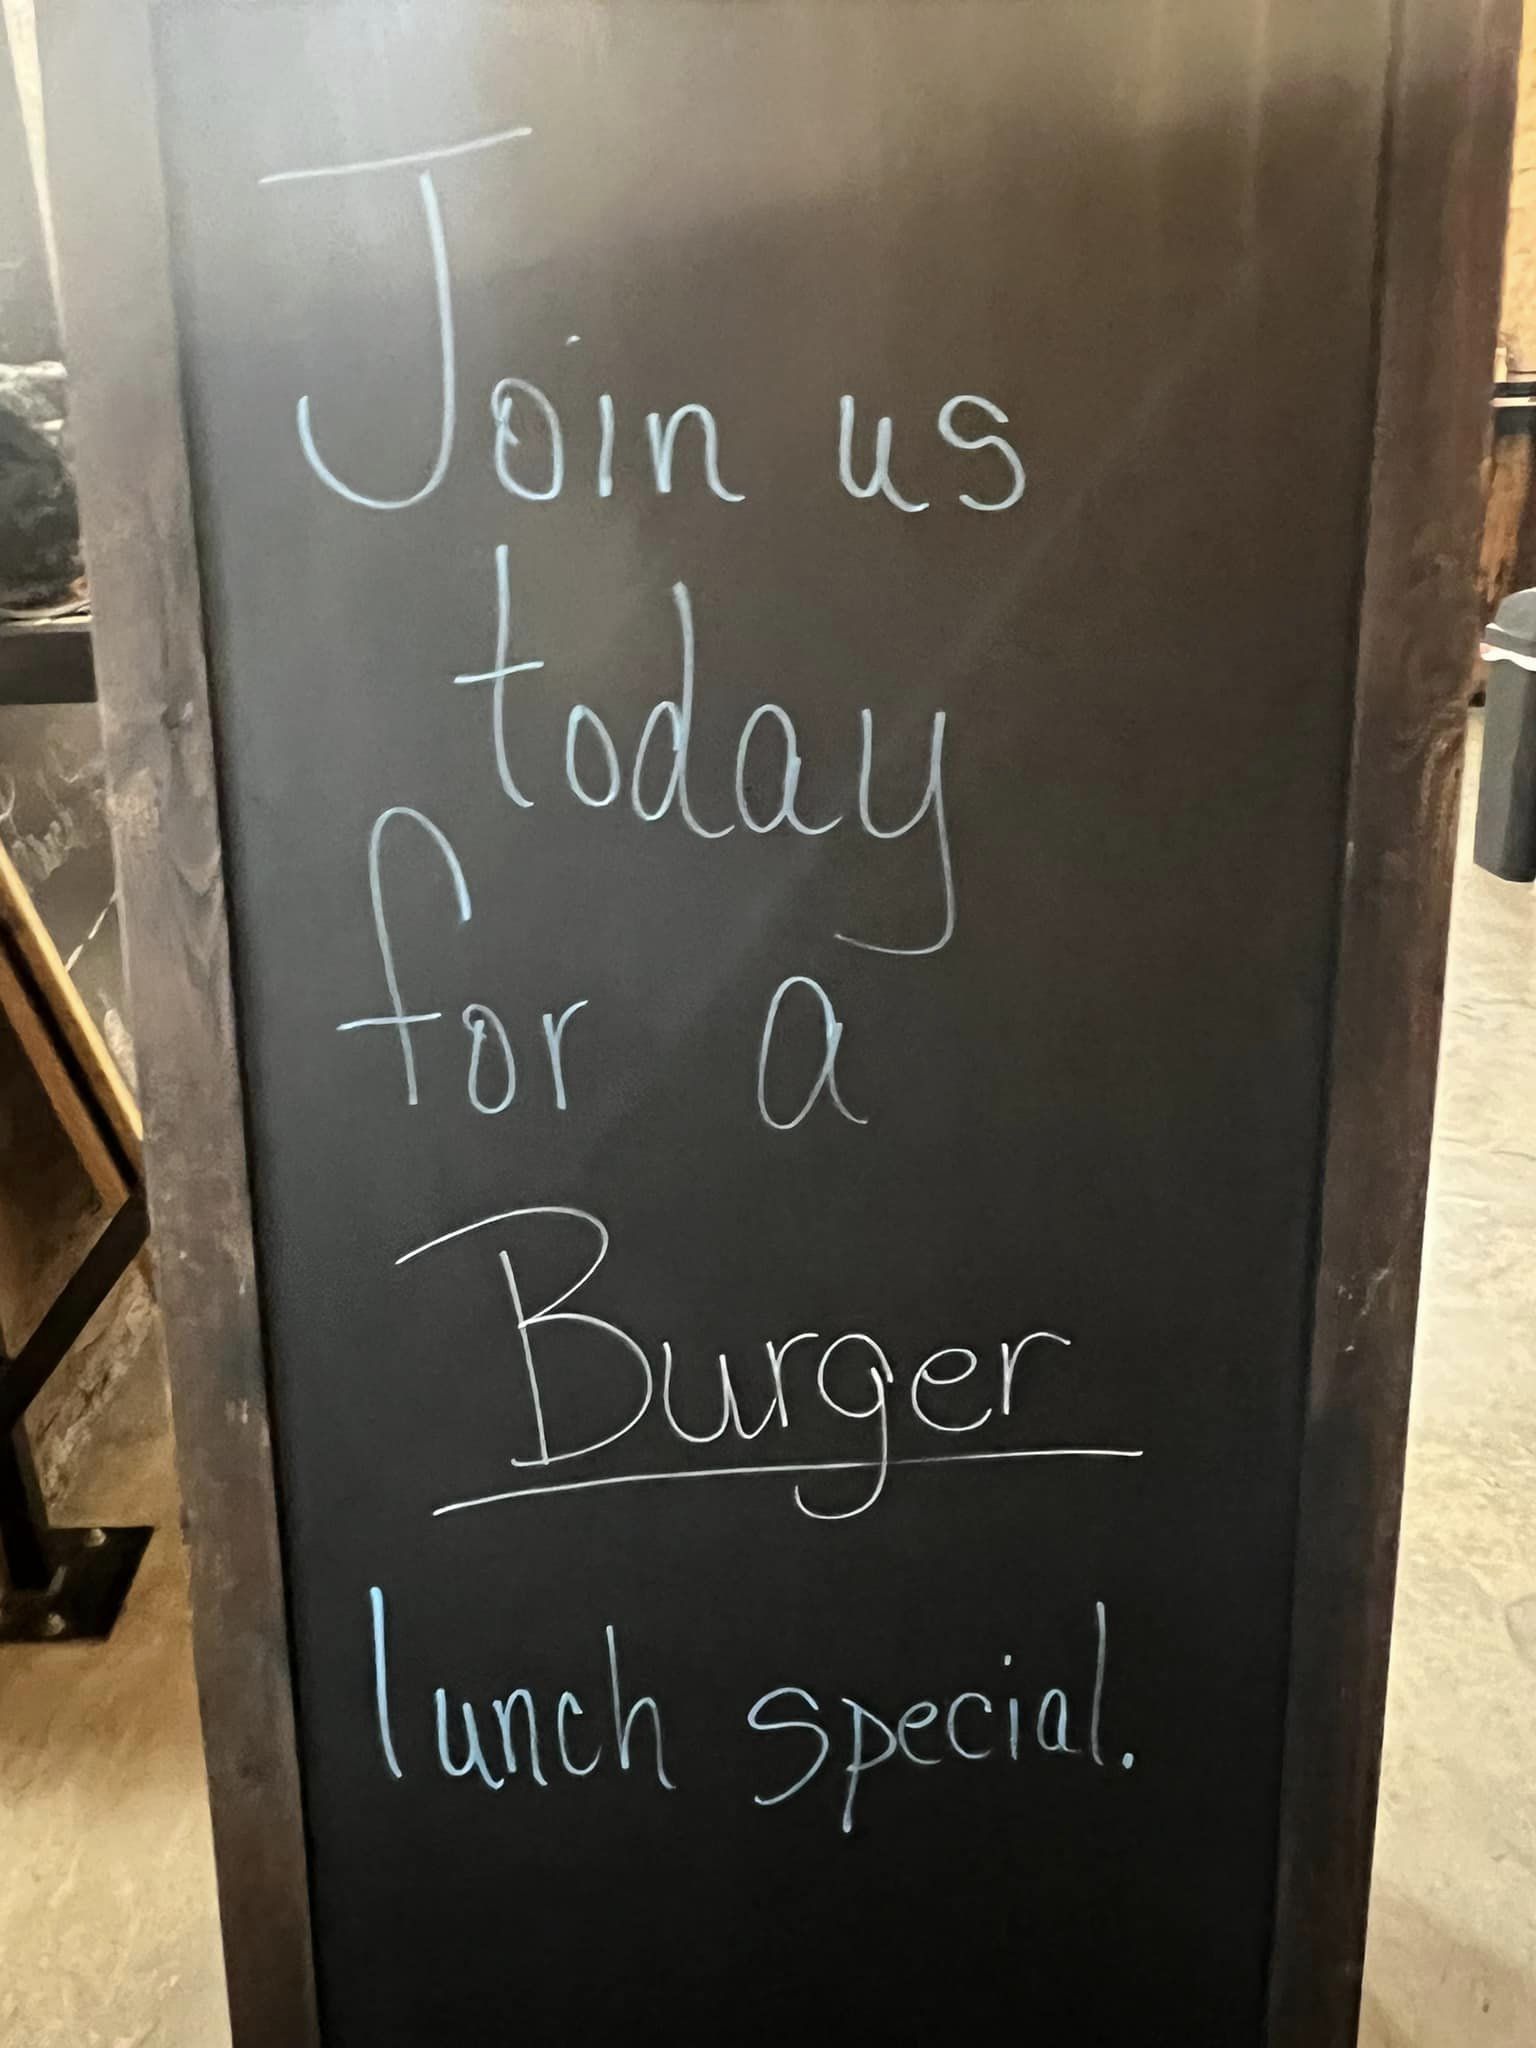 Join us
today
for a
Burger
lunch special.